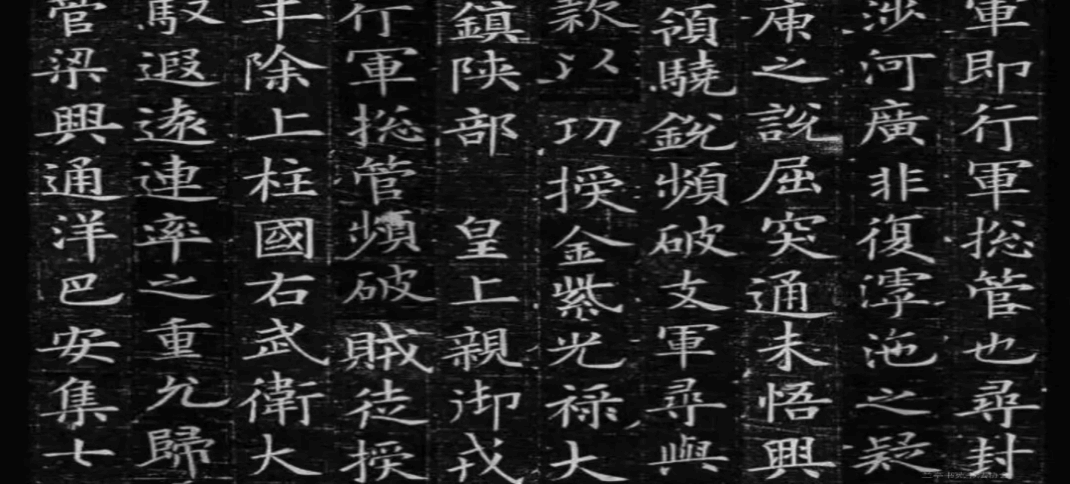 軍即行軍捴管也尋封
涉河廣非復滹沲之疑
庾之說屈突通未悟興
領驍銳頻破文軍尋與
款以功授金紫光禄大
鎮陝部皇上親御戎
行軍捴管頻破賊徒授
年除上柱國右武衛大
馭遐遠連率之重允歸
管梁興通洋巴安集七